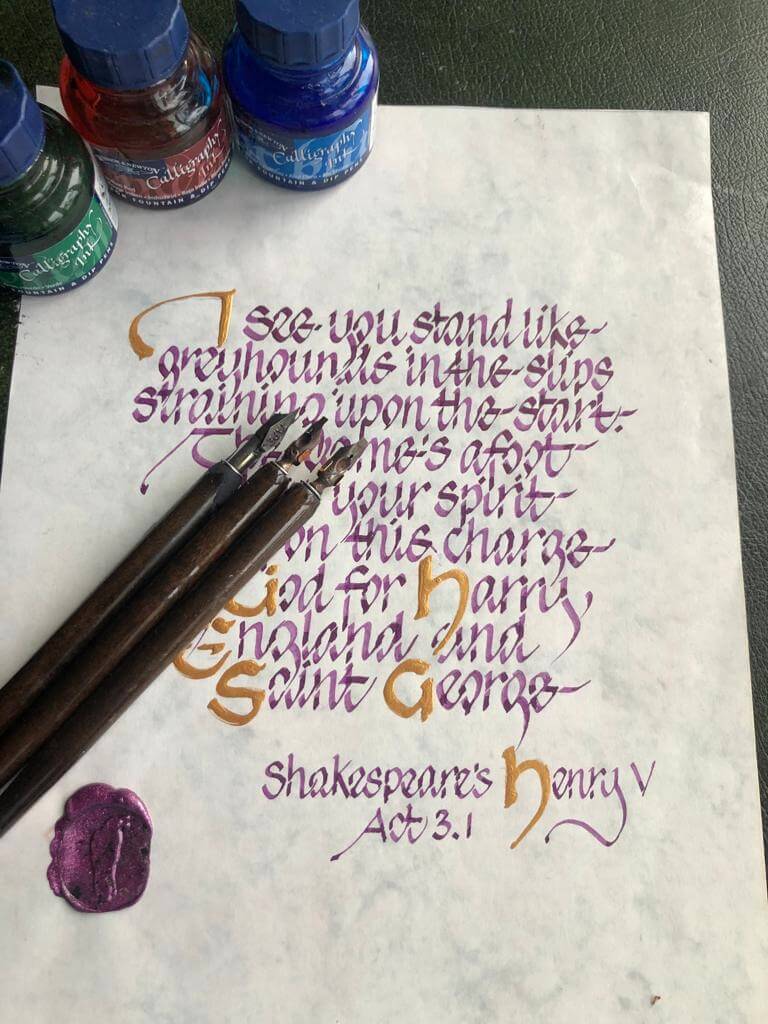 Calligraphy
Ink
FOUNTAIN & DIP PEN
Calligraphy
Ink
FOUNTAIN & DIP PEN
Calligraphy
Ink
FOUNTAIN & DIP PEN
I see you stand like
greyhounds in the slips
straining upon the start.
The game's afoot
your spirit
on this charge
God for Harry
England and
Saint George
Shakespeare's Henry V
Act 3.1